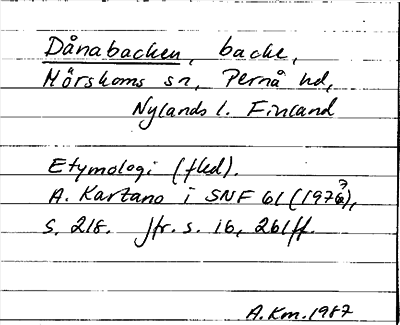 Dånabacken, backe,
Mörskoms sn, Pernå hd,
Nylands l. Finland
Etymologi (fled).
A. Kartano i SNF 61 (1973),
s. 218. Jfr. s. 16, 261ff.
A.Km.1987